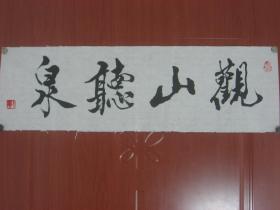 觀山聽泉